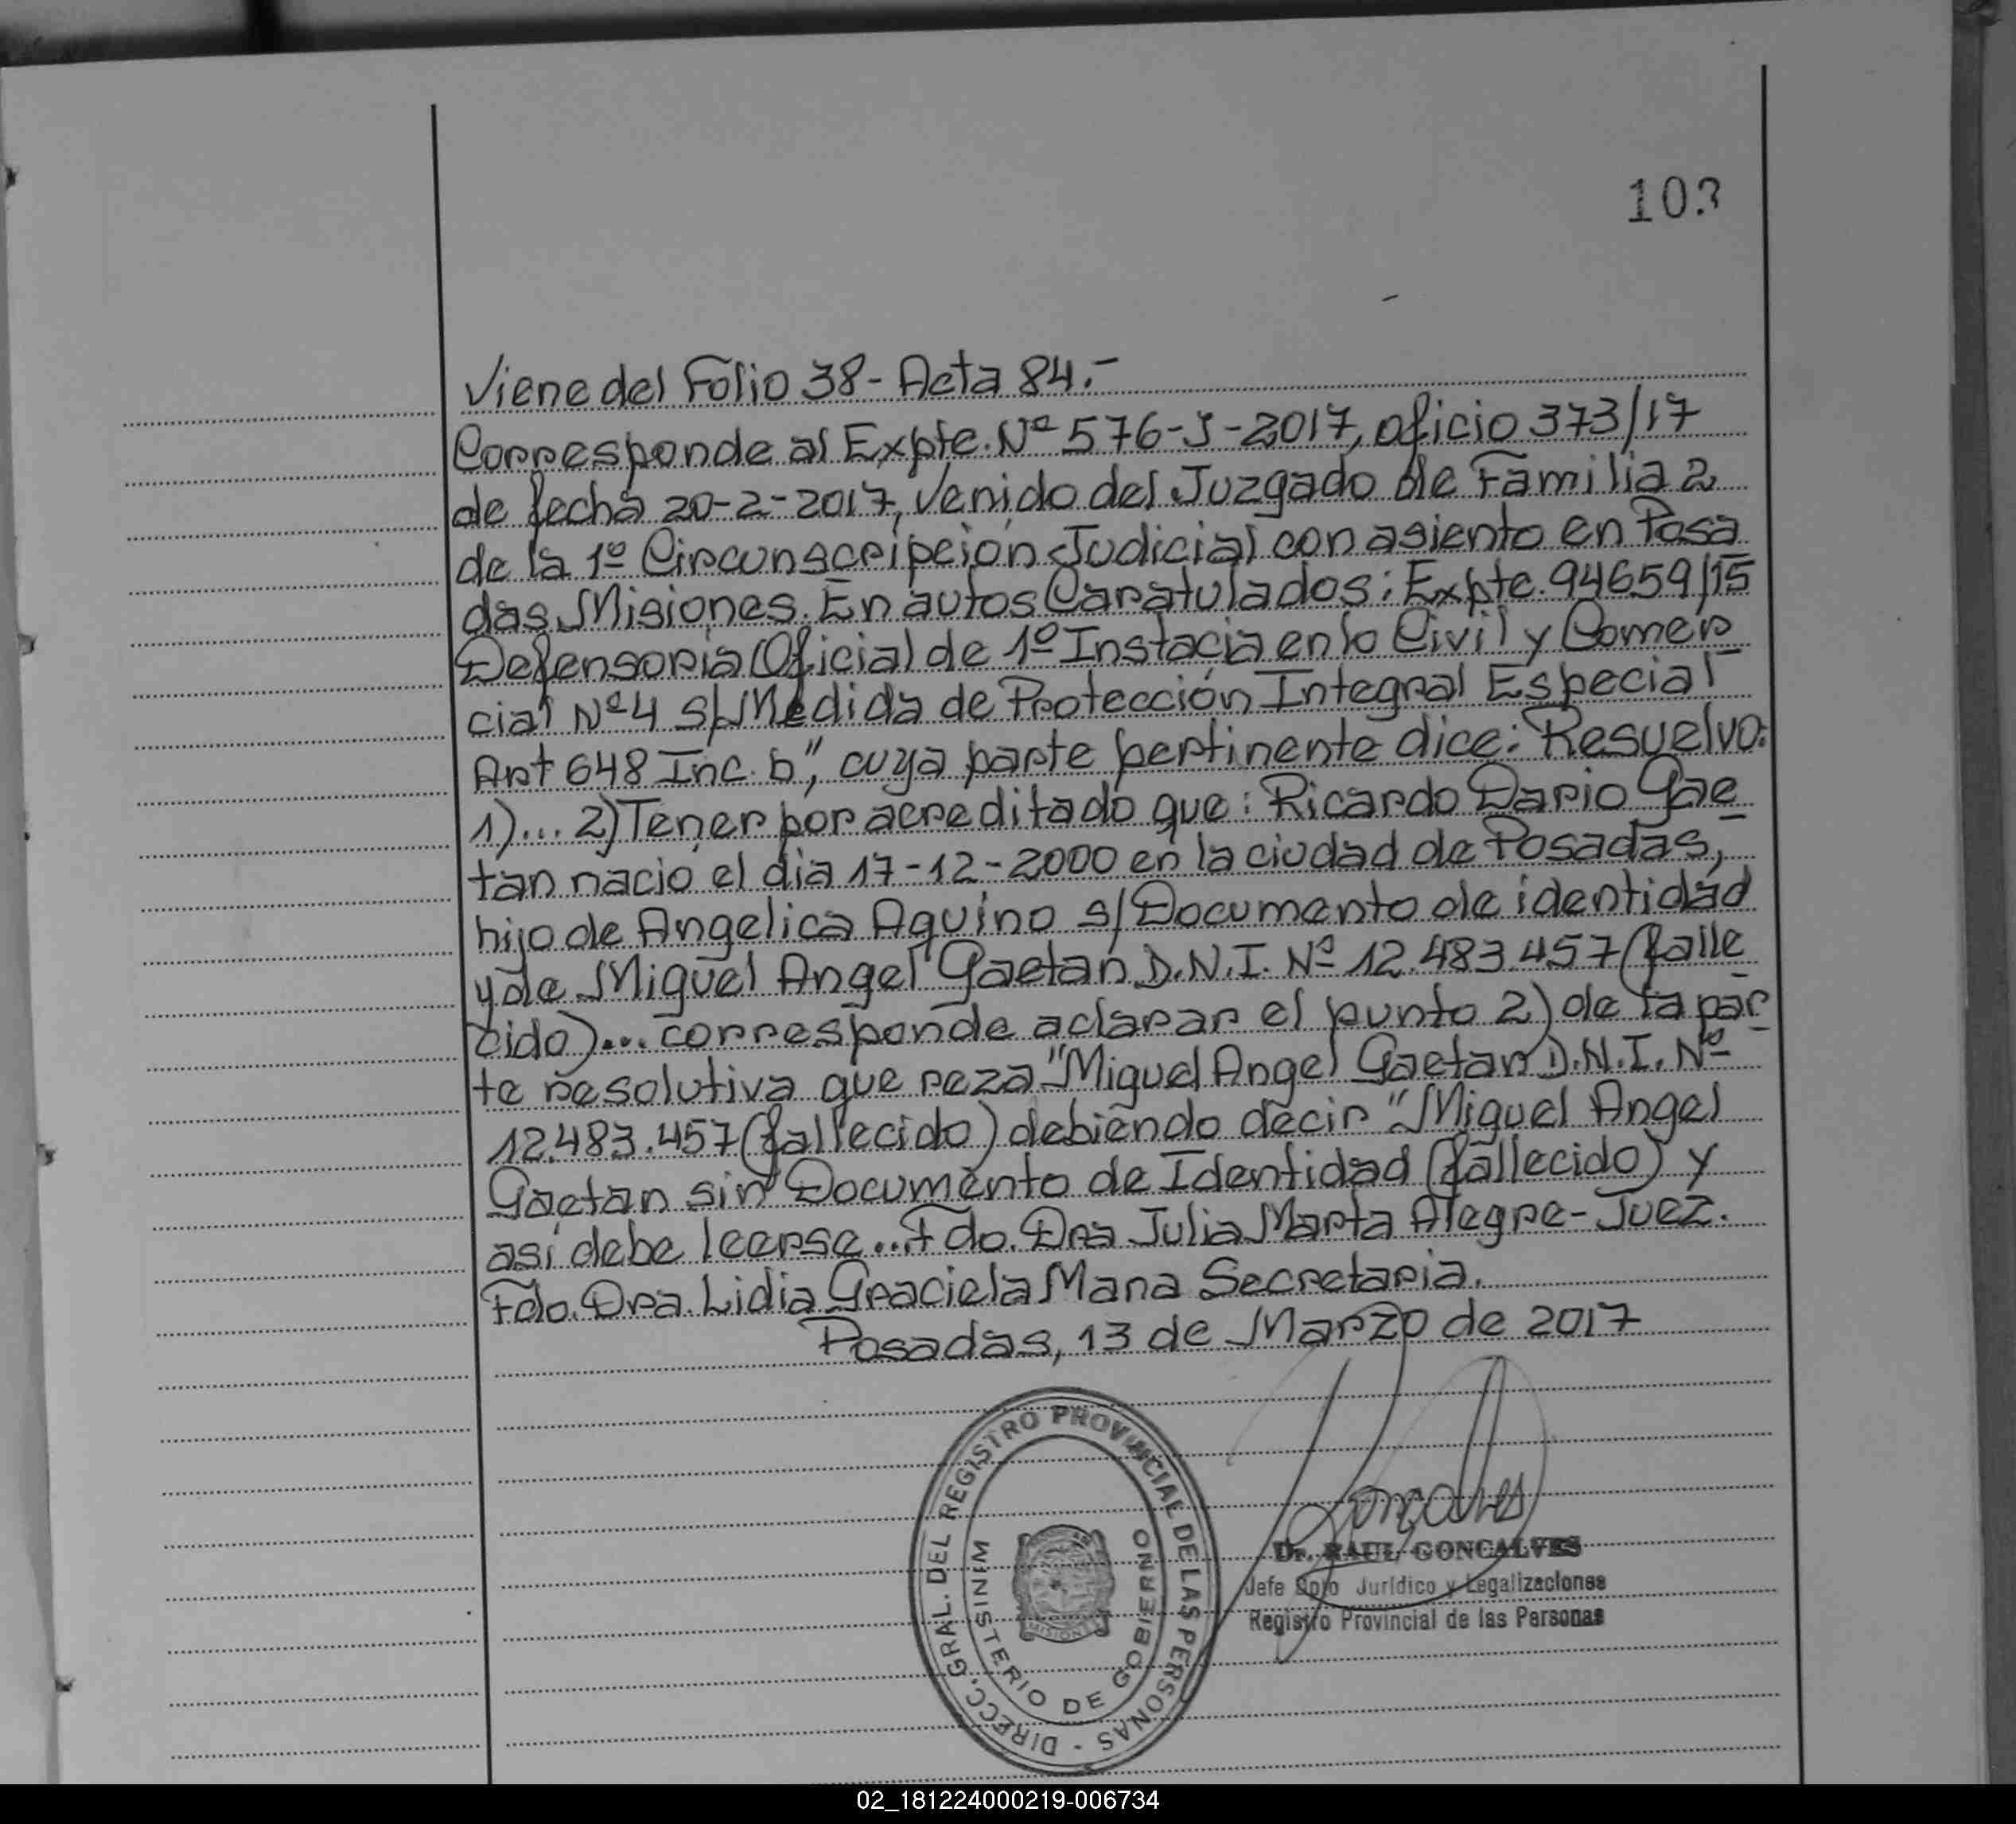 103
Viene del Folio 38- Acta 84.-
Corresponde al Expte. Nº 576-J-2017, oficio 373/17
de fecha 20-2-2017, venido del Juzgado de Familia 2
de la 1º Circunscripción Judicial con asiento en Posa
das, Misiones. En autos Caratulados: Expte. 94659/15
Defensoria Oficial de 1º Instacia en lo Civil y Comer
cial Nº4 s/ Medida de Protección Integral Especial
Art 648 Inc. b", cuya parte pertinente dice: Resuelvo:
1)... 2) Tener por acreditado que: Ricardo Dario Gae
tan nació el dia 17-12-2000 en la ciudad de Posadas,
hijo de Angelica Aquino s/ Documento de identidad
y de Miguel Angel Gaetan D.N.I. Nº 12.483.457 (falle
cido)... corresponde aclarar el punto 2) de la par
te resolutiva que reza "Miguel Angel Gaetan D.N.I. Nº
12.483.457 (fallecido) debiendo decir "Miguel Angel
Gaetan sin Documento de Identidad (fallecido) y
así debe leerse... Fdo. Dra Julia Marta Alegre- Juez.
Fdo. Dra. Lidia Graciela Mana Secretaria.
Posadas, 13 de Marzo de 2017
DIRECC. GRAL. DEL REGISTRO PROVINCIAL DE LAS PERSONAS -
MINISTERIO DE GOBIERNO
MISIONES
Goncalves
Dr. RAUL GONCALVES
Jefe Dpto Jurídico y Legalizaciones
Registro Provincial de las Personas
02_181224000219-006734